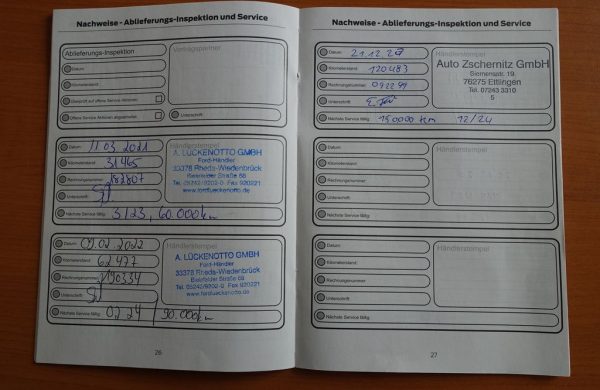 Nachweise - Ablieferungs-Inspektion und Service
Ablieferungs-Inspektion
Datum
Kilometerstand
Rechnungsnummer
Überprüft auf offene Service-Aktionen
Offene Service-Aktionen abgemeldet
Vertragspartner
Unterschrift
Datum: 11.03.2021
Kilometerstand: 31465
Rechnungsnummer: 182807
Unterschrift:
Nächste Service fällig: 3/23, 60.000km
Händlerstempel
A. LÜCKENOTTO GMBH
Ford-Händler
33378 Rheda-Wiedenbrück
Bielefelder Straße 68
Tel. 05242/9202-0 Fax 920221
www.fordlueckenotto.de
Datum: 09.02.2022
Kilometerstand: 62477
Rechnungsnummer: 190334
Unterschrift:
Nächste Service fällig: 02.24 / 90.000km
Händlerstempel
A. LÜCKENOTTO GMBH
Ford-Händler
33378 Rheda-Wiedenbrück
Bielefelder Straße 68
Tel. 05242/9202-0 Fax 920221
www.fordlueckenotto.de
26
Nachweise - Ablieferungs-Inspektion und Service
Datum: 21.12.
Kilometerstand: 120.483
Rechnungsnummer:
Unterschrift:
Nächste Service fällig: 150000 km 12/24
Händlerstempel
Auto Zschernitz GmbH
Siemensstr. 19
76275 Ettlingen
Tel. 07243 3310
5
Datum:
Kilometerstand:
Rechnungsnummer:
Unterschrift:
Nächste Service fällig:
Händlerstempel
Datum:
Kilometerstand:
Rechnungsnummer
Unterschrift:
Nächste Service fällig:
Händlerstempel
27